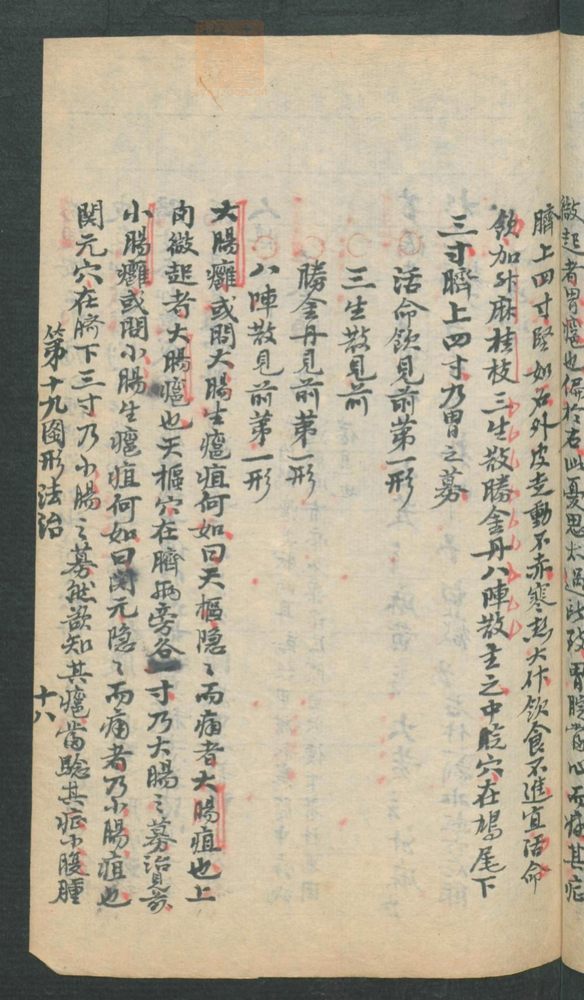 微起者胃癰也偏於右此憂思太過所致胃脘當心而痛其症
臍上四寸堅如石外皮走動不赤寒熱大作飲食不進宜活命
飲加升麻桂枝三生散勝金丹八陣散主之中脘穴在鳩尾下
三寸臍上四寸乃胃之募
活命飲見前第一形
三生散見前
勝金丹見前第一形
八陣散見前第一形
大腸癰或問大腸生癰疽何如曰天樞隱〻而痛者大腸疽也上
肉微起者大腸癰也天樞穴在臍兩旁各一寸乃大腸之募治見前
小腸癰或問小腸生癰疽何如曰関元隐〻而痛者乃小腸疽也
関元穴在臍下三寸乃小腸之募然欲知其癰當驗其症小腹腫
第十九圖形法治
十八